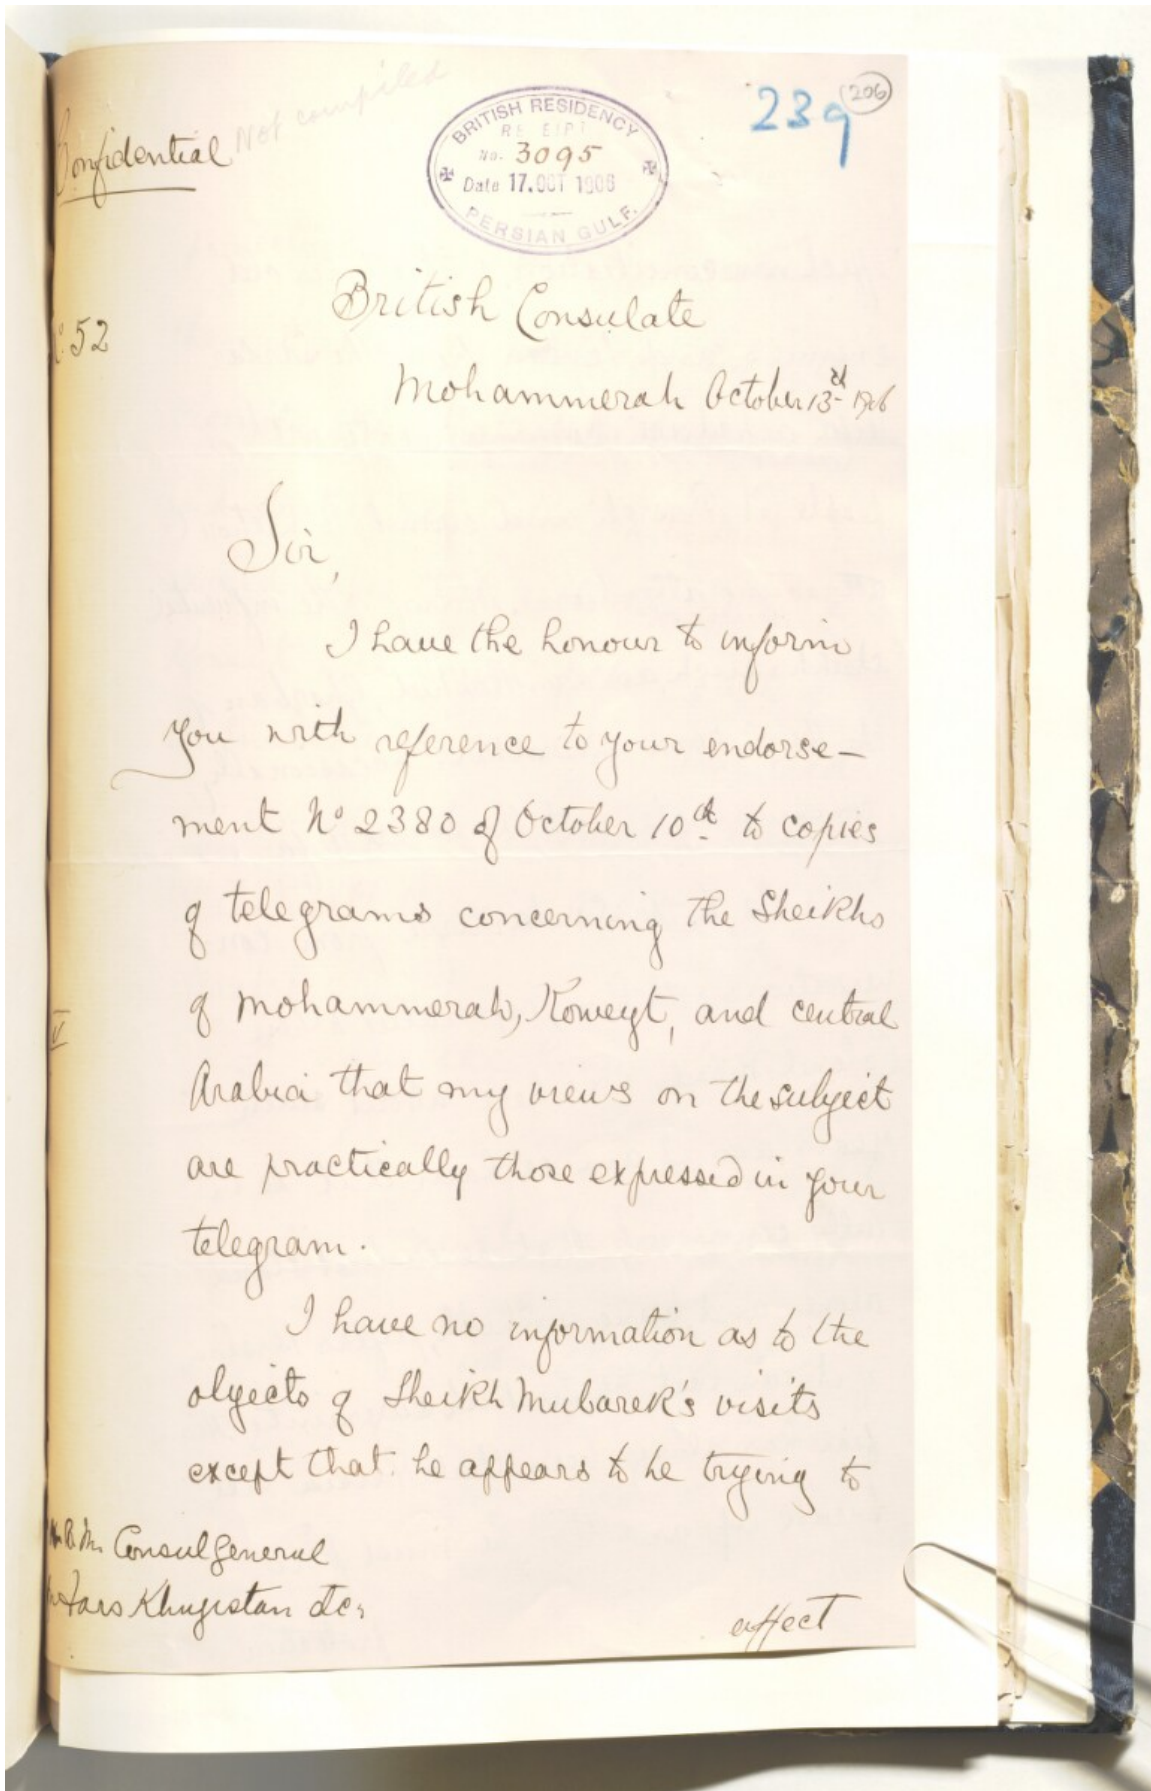 Confidential
Not compiled
BRITISH RESIDENCY
RECEIPT
No. 3095
Date 17.OCT 1906
PERSIAN GULF.
239
206
No. 52
British Consulate
Mohammerah October 13th 1906
Sir,
I have the honour to inform
you with reference to your endorse-
ment No 2380 of October 10th to copies
of telegrams concerning the Sheikhs
of Mohammerah, Koweyt, and central
Arabia that my views on the subject
are practically those expressed in your
telegram.
I have no information as to the
objects of Sheikh Mubarek's visits
except that he appears to be trying to
effect
H.B.M. Consul General
Fars Khuzistan &c,